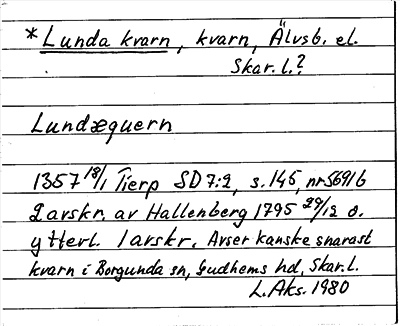 *Lunda kvarn, kvarn, Älvsb. el.
Skar. l.?
Lundæquern
1357 18/1 Tierp SD 7:2, s. 145, nr 5691b
2 avskr. av Hallenberg 1795 29/12 o.
ytterl. 1 avskr. Avser kanske snarast
kvarn i Borgunda sn, Gudhems hd, Skar. l.
L. Aks. 1980